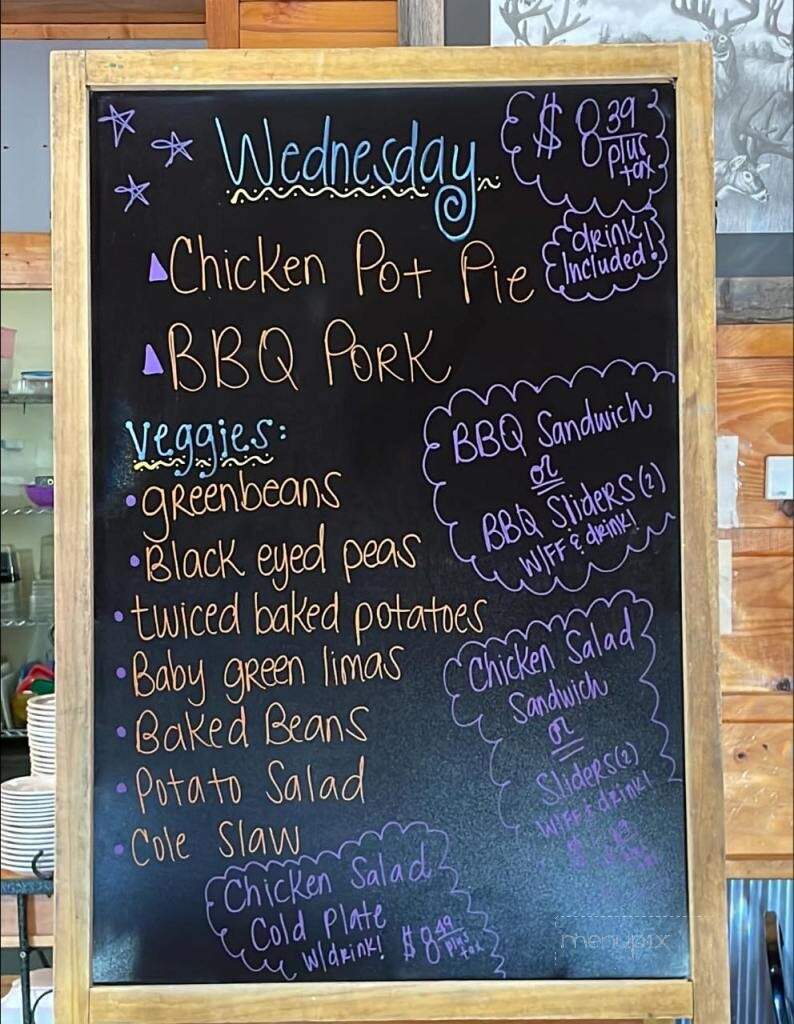 Wednesday
$8.39
plus
tax
drink
Included!
Chicken Pot Pie
BBQ PORK
Veggies:
greenbeans
Black eyed peas
twiced baked potatoes
Baby green limas
Baked Beans
Potato Salad
Cole Slaw
BBQ Sandwich
or
BBQ Sliders(2)
W/FF & drink!
Chicken Salad
Sandwich
or
Sliders(2)
W/FF & drink!
$
Chicken Salad
Cold Plate
W/drink! $8.49
plus
tax
menupix